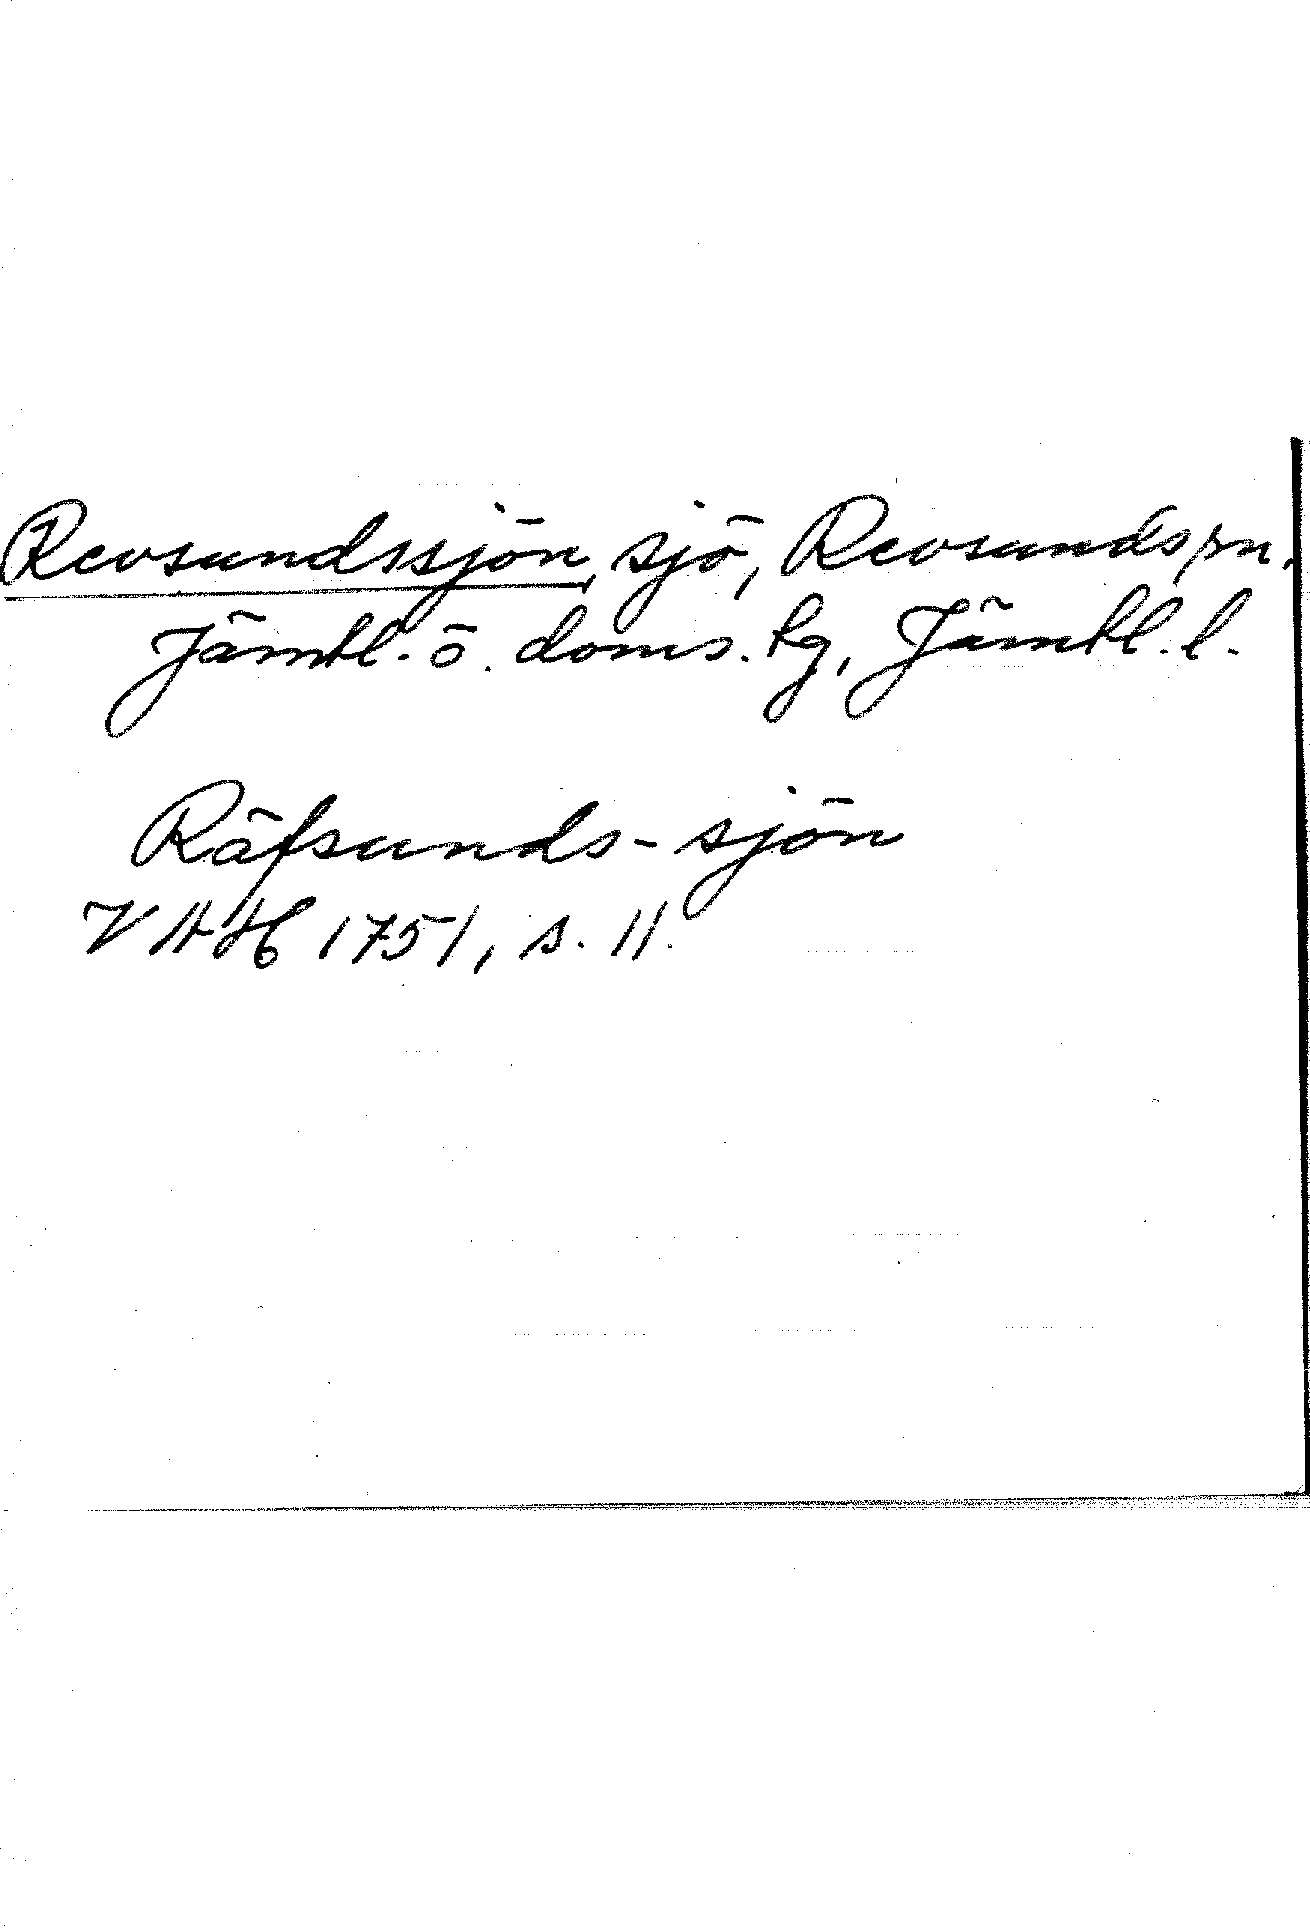 Revsundssjön, sjö, Revsunds sn.
Jämtl. ö. doms. tg, Jämtl. l.
Räfsunds-sjön
VAH 1751, s. 11.